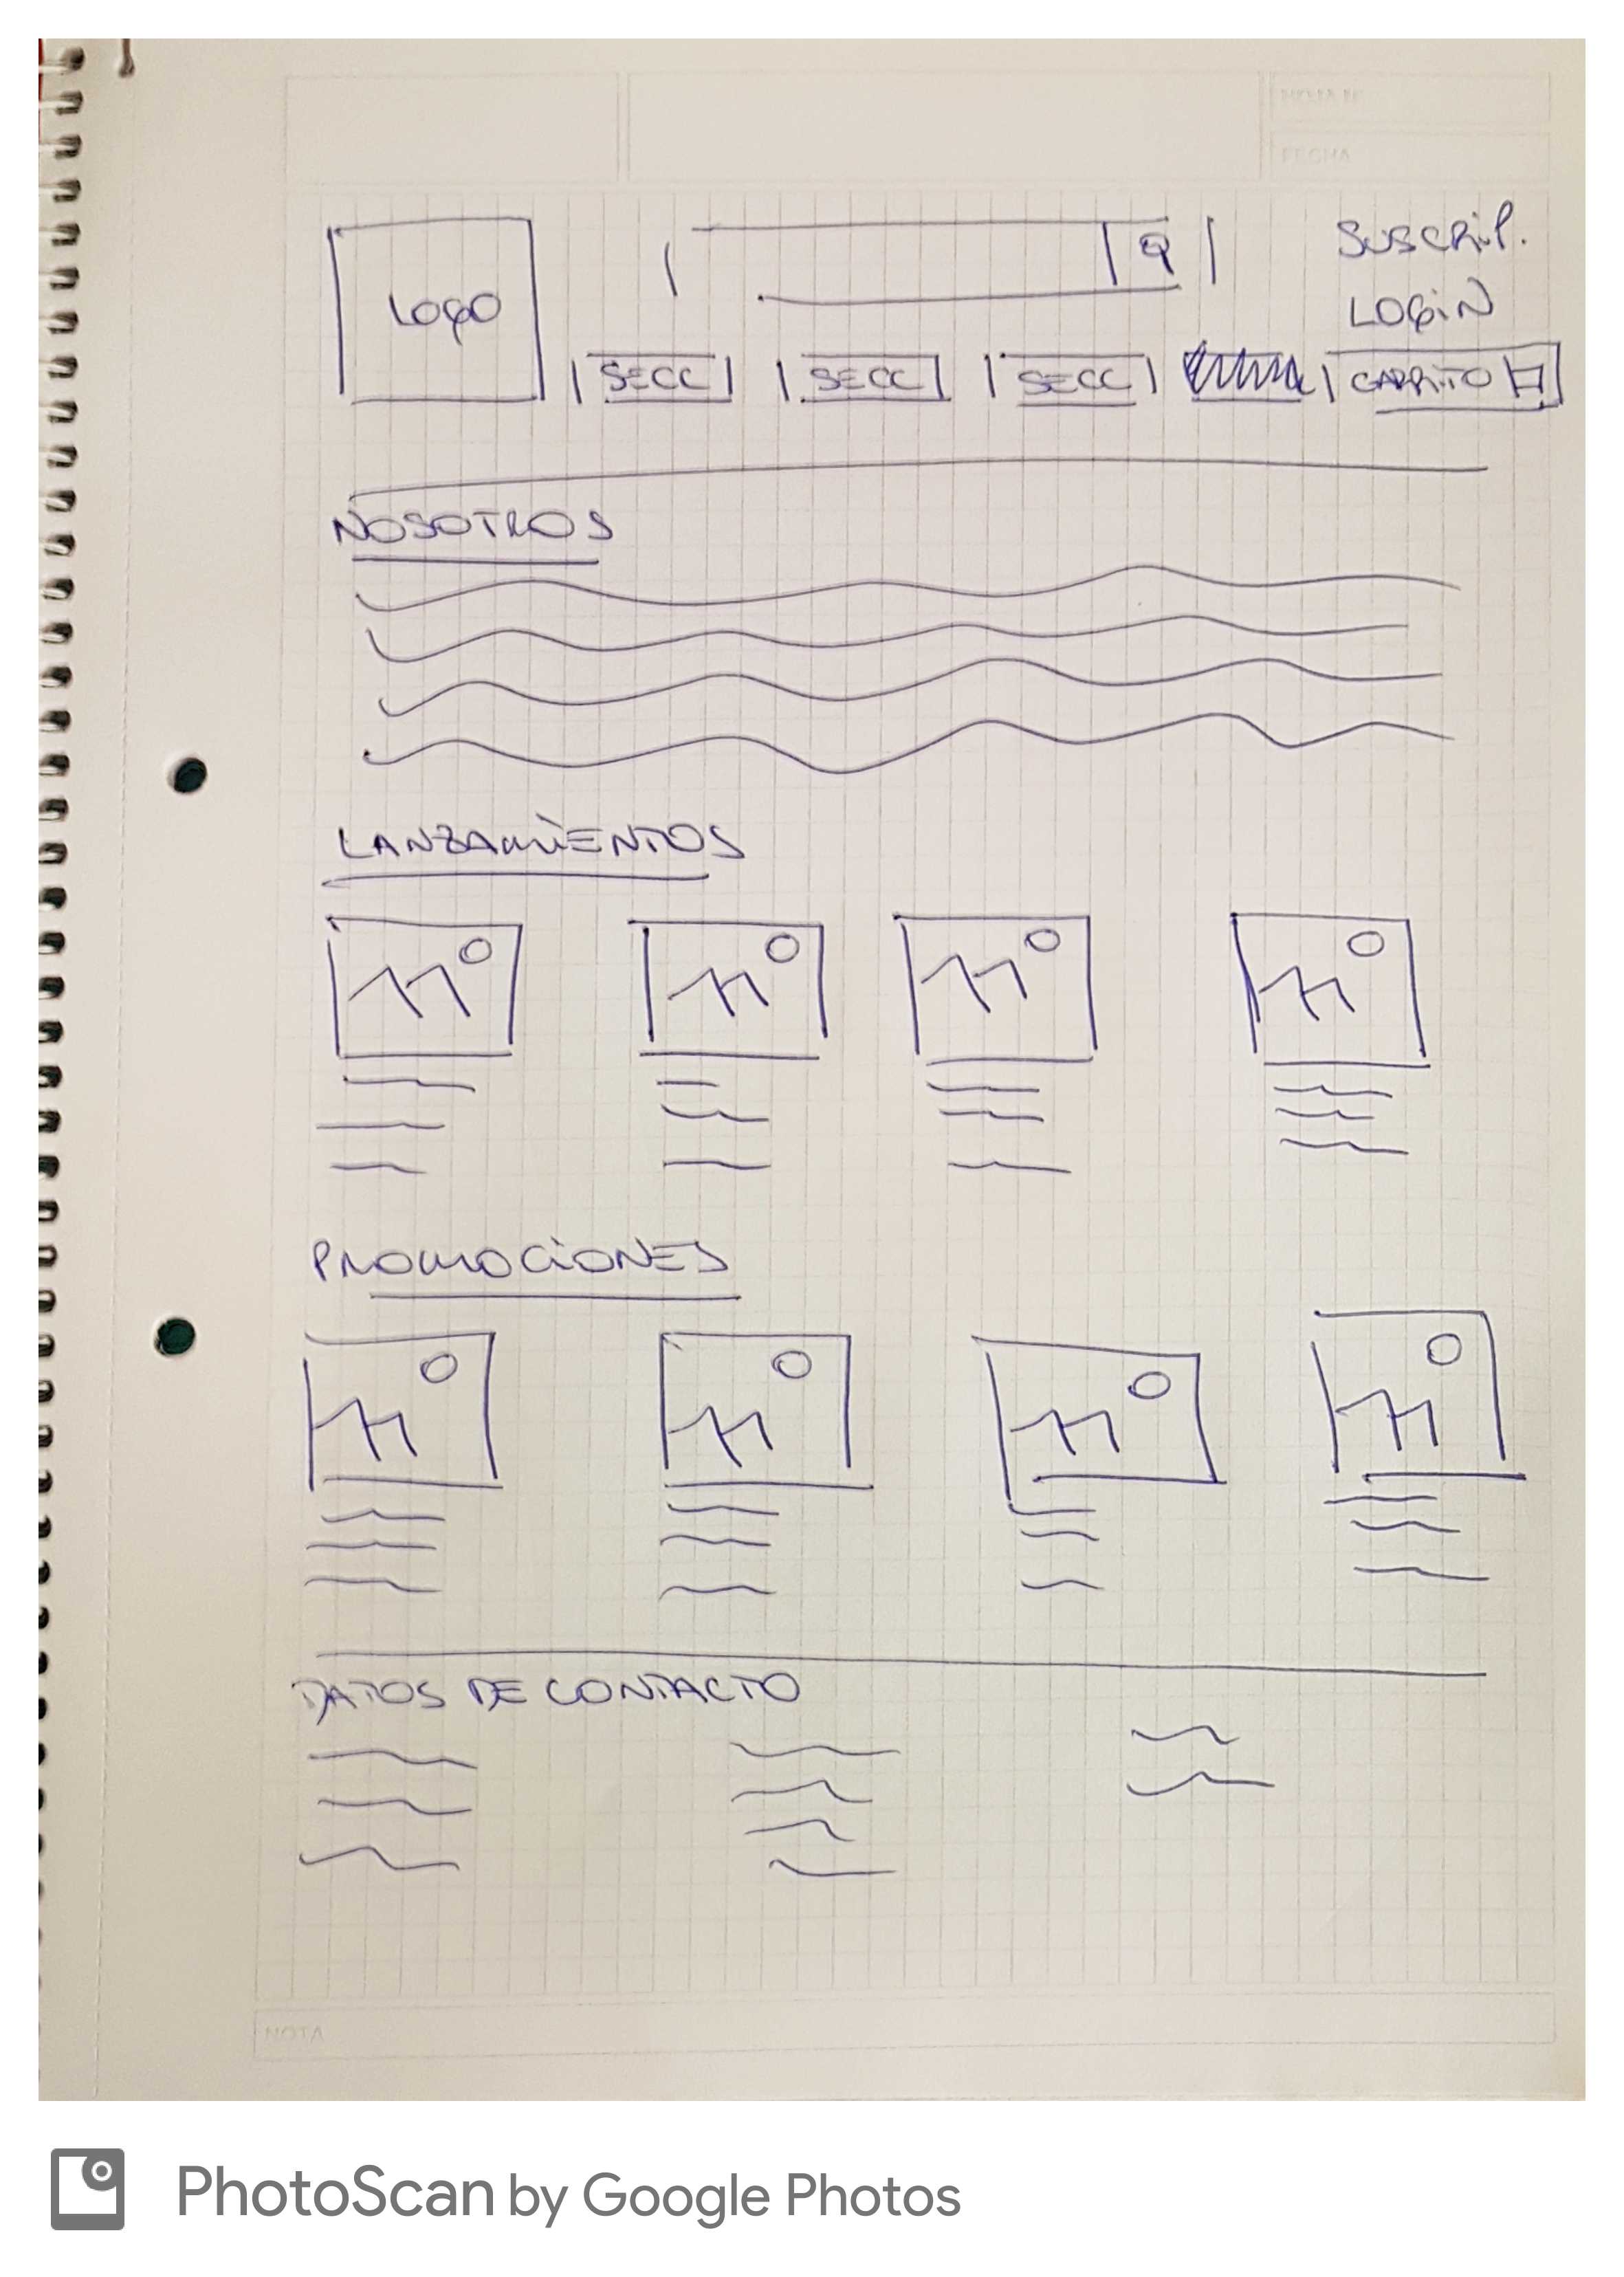 NÚMERO
FECHA
LOGO
SUSCRIP.
LOGIN
SECC
SECC
SECC
CARRITO
NOSOTROS
LANZAMIENTOS
PROMOCIONES
DATOS DE CONTACTO
NOTA
PhotoScan by Google Photos